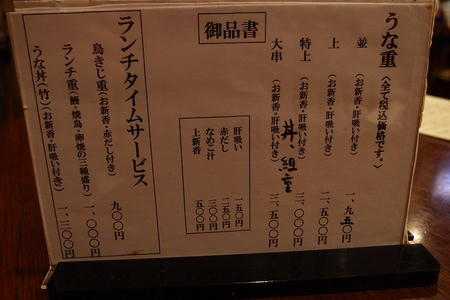 うな重〈全て税込価格です。〉
並(お新香・肝吸い付き) 一、九五〇円
上(お新香・肝吸い付き) 二、五〇〇円
特上(お新香・肝吸い付き) 三、〇〇〇円
丼、組重
大串(お新香・肝吸い付き) 三、五〇〇円
御品書
肝吸い 一五〇円
赤だし 二五〇円
なめこ汁 三〇〇円
上新香 五〇〇円
ランチタイムサービス
鳥きじ重(お新香・赤だし付き) 九〇〇円
ランチ重(鰻・焼鳥・卵焼の三種盛り) 一、〇〇〇円
うな丼(竹)(お新香・肝吸い付き) 一、三〇〇円